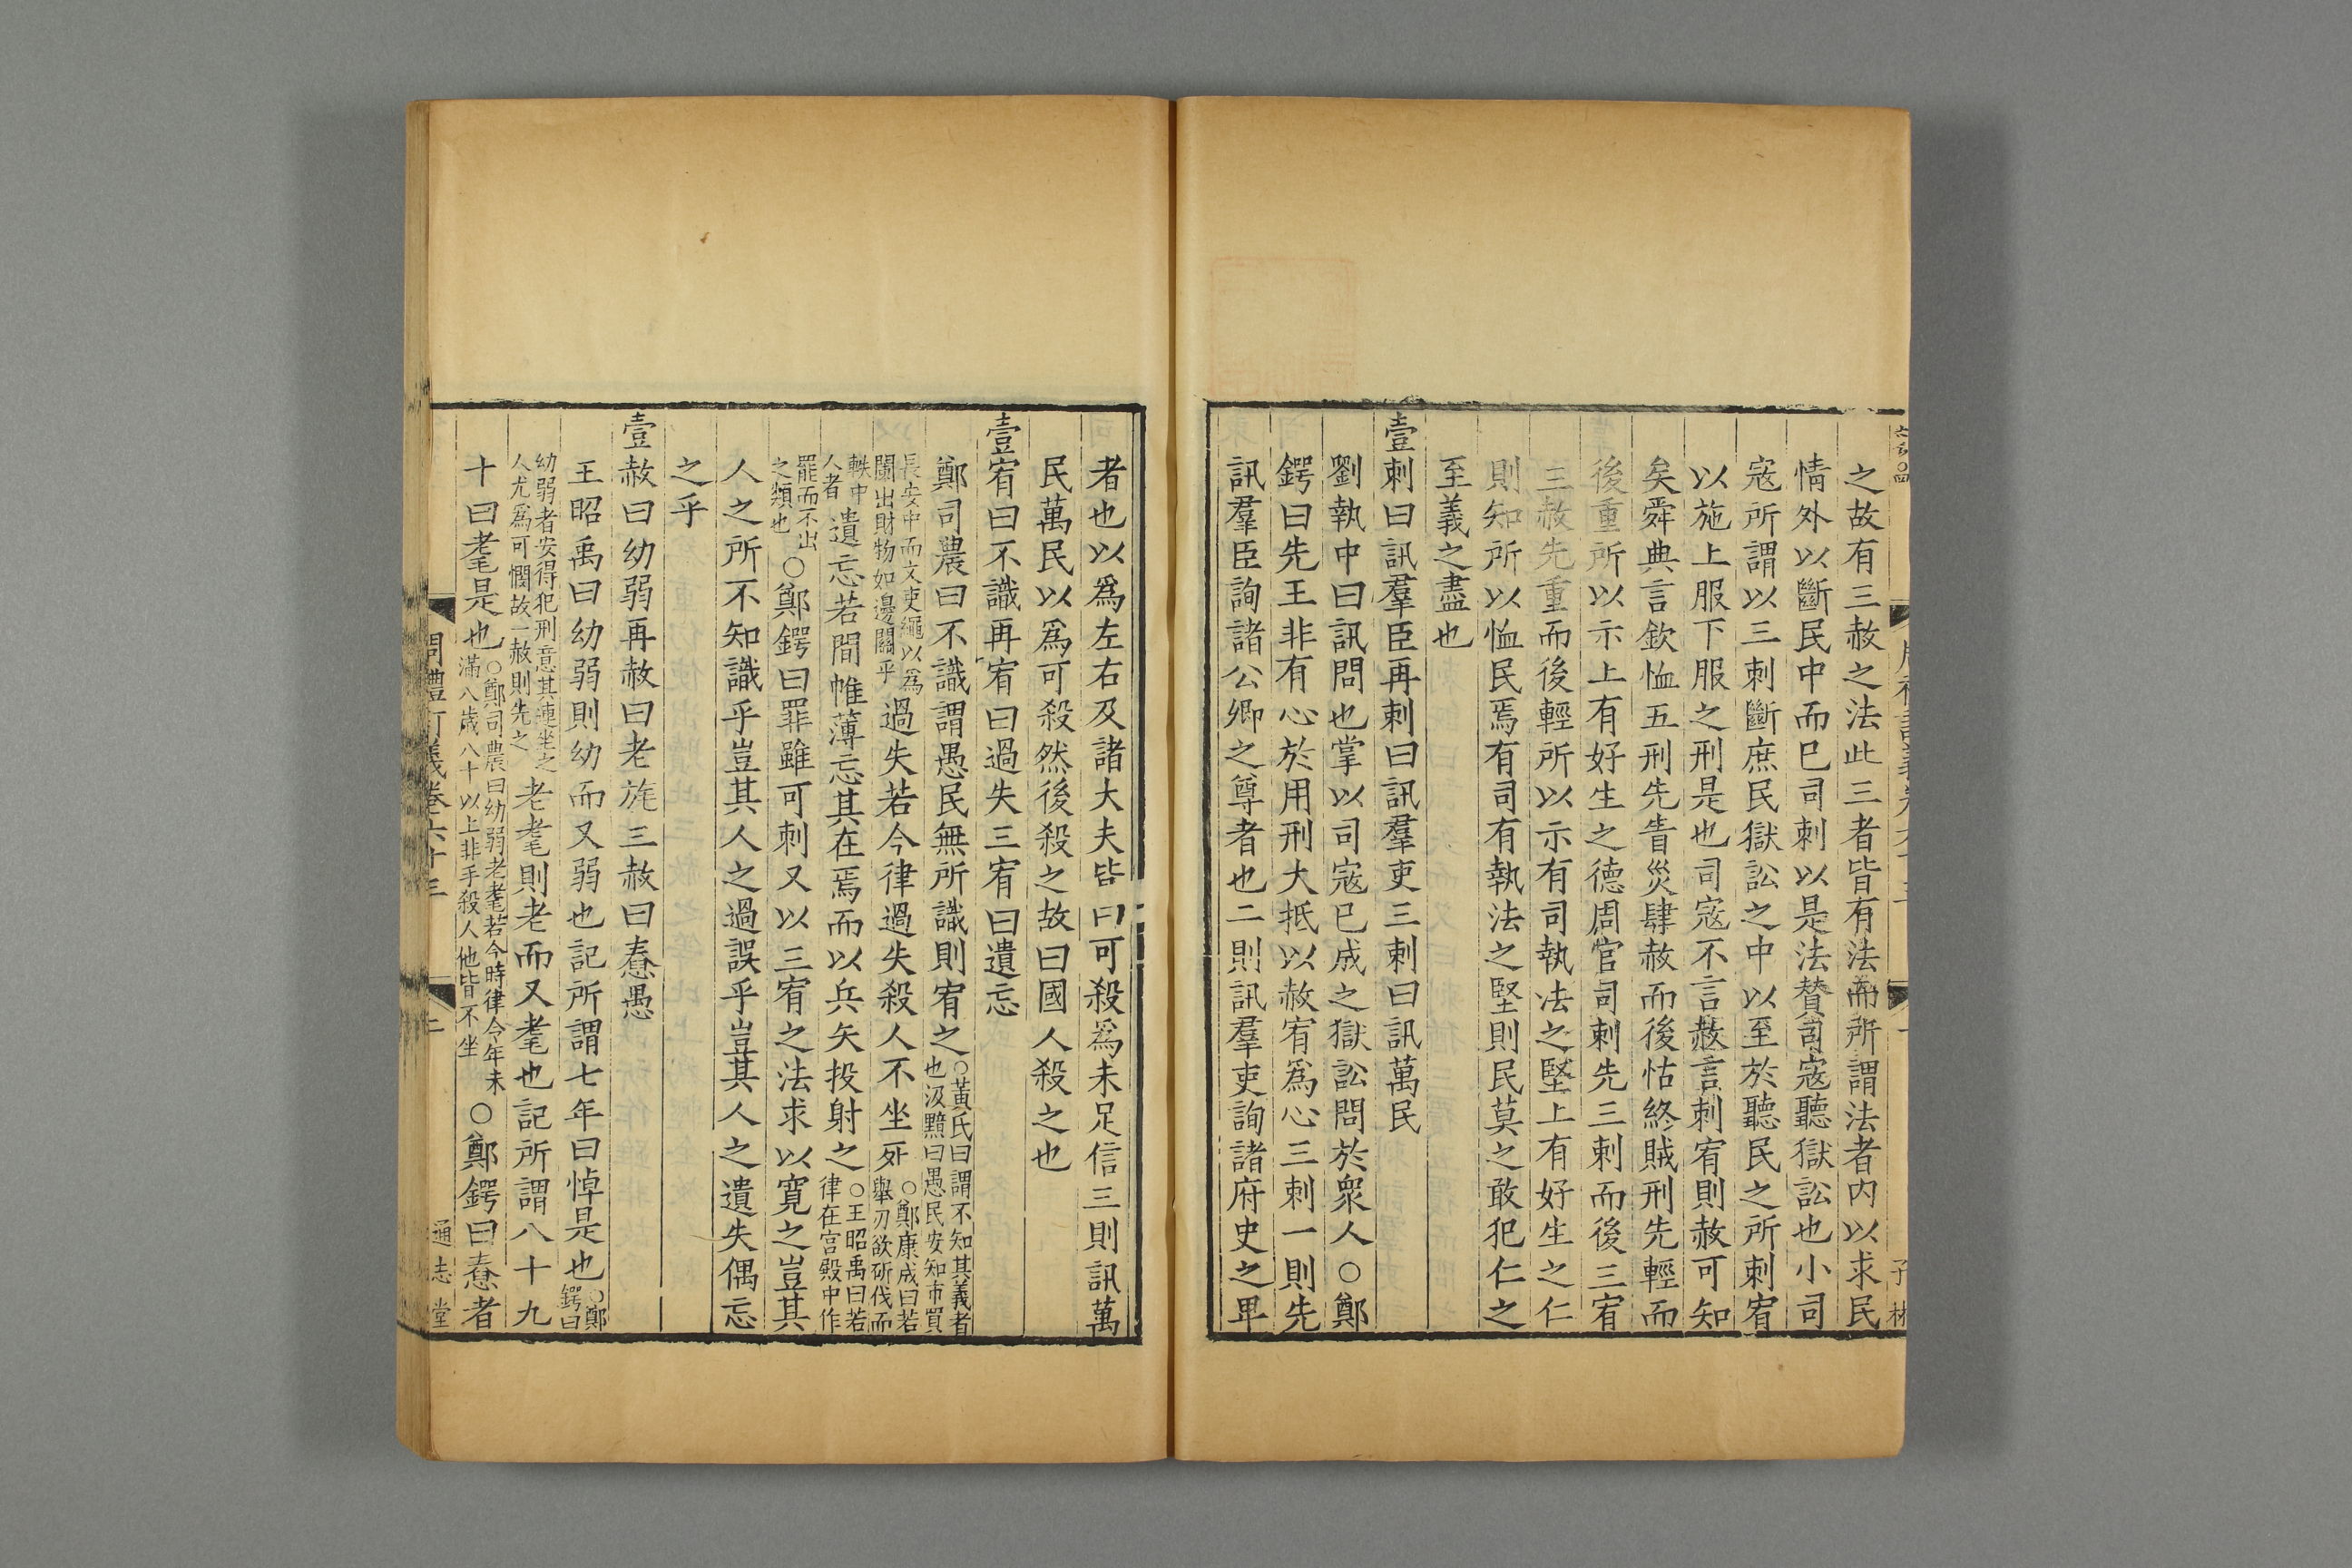 之故有三赦之法此三者皆有法而所謂法者内以求民
情外以斷民中而已司刺以是法贊司寇聽獄訟也小司
寇所謂以三刺斷庶民獄訟之中以至於聽民之所刺宥
以施上服下服之刑是也司寇不言赦言刺宥則赦可知
矣舜典言欽恤五刑先眚災肆赦而後怙終賊刑先輕而
後重所以示上有好生之德周官司刺先三刺而後三宥
三赦先重而後輕所以示有司執法之堅上有好生之仁
則知所以恤民焉有司有執法之堅則民莫之敢犯仁之
至義之盡也
壹刺曰訊羣臣再刺曰訊羣吏三刺曰訊萬民
劉執中曰訊問也掌以司寇已成之獄訟問於衆人○鄭
鍔曰先王非有心於用刑大抵以赦宥爲心三刺一則先
訊羣臣詢諸公卿之尊者也二則訊羣吏詢諸府史之卑
者也以爲左右及諸大夫皆曰可殺爲未足信三則訊萬
民萬民以爲可殺然後殺之故曰國人殺之也
壹宥曰不識再宥曰過失三宥曰遺忘
鄭司農曰不識謂愚民無所識則宥之○黃氏曰謂不知其義者也汲黯曰愚民安知市買
長安中而文吏繩以爲闌出財物如邊關乎過失若今律過失殺人不坐死○鄭康成曰若舉刃欲斫伐而
軼中人者遺忘若間帷薄忘其在焉而以兵矢投射之○王昭禹曰若律在宫殿中作
罷而不出之類也○鄭鍔曰罪雖可刺又以三宥之法求以寛之豈其
人之所不知識乎豈其人之過誤乎豈其人之遺失偶忘
之乎
壹赦曰幼弱再赦曰老旄三赦曰惷愚
王昭禹曰幼弱則幼而又弱也記所謂七年曰悼是也○鄭鍔曰
幼弱者安得犯刑意其連坐之人尤爲可憫故一赦則先之老耄則老而又耄也記所謂八十九
十曰耄是也○鄭司農曰幼弱老耄若今時律令年未滿八歲八十以上非手殺人他皆不坐○鄭鍔曰惷者
周禮訂義卷六十三
二
通志堂